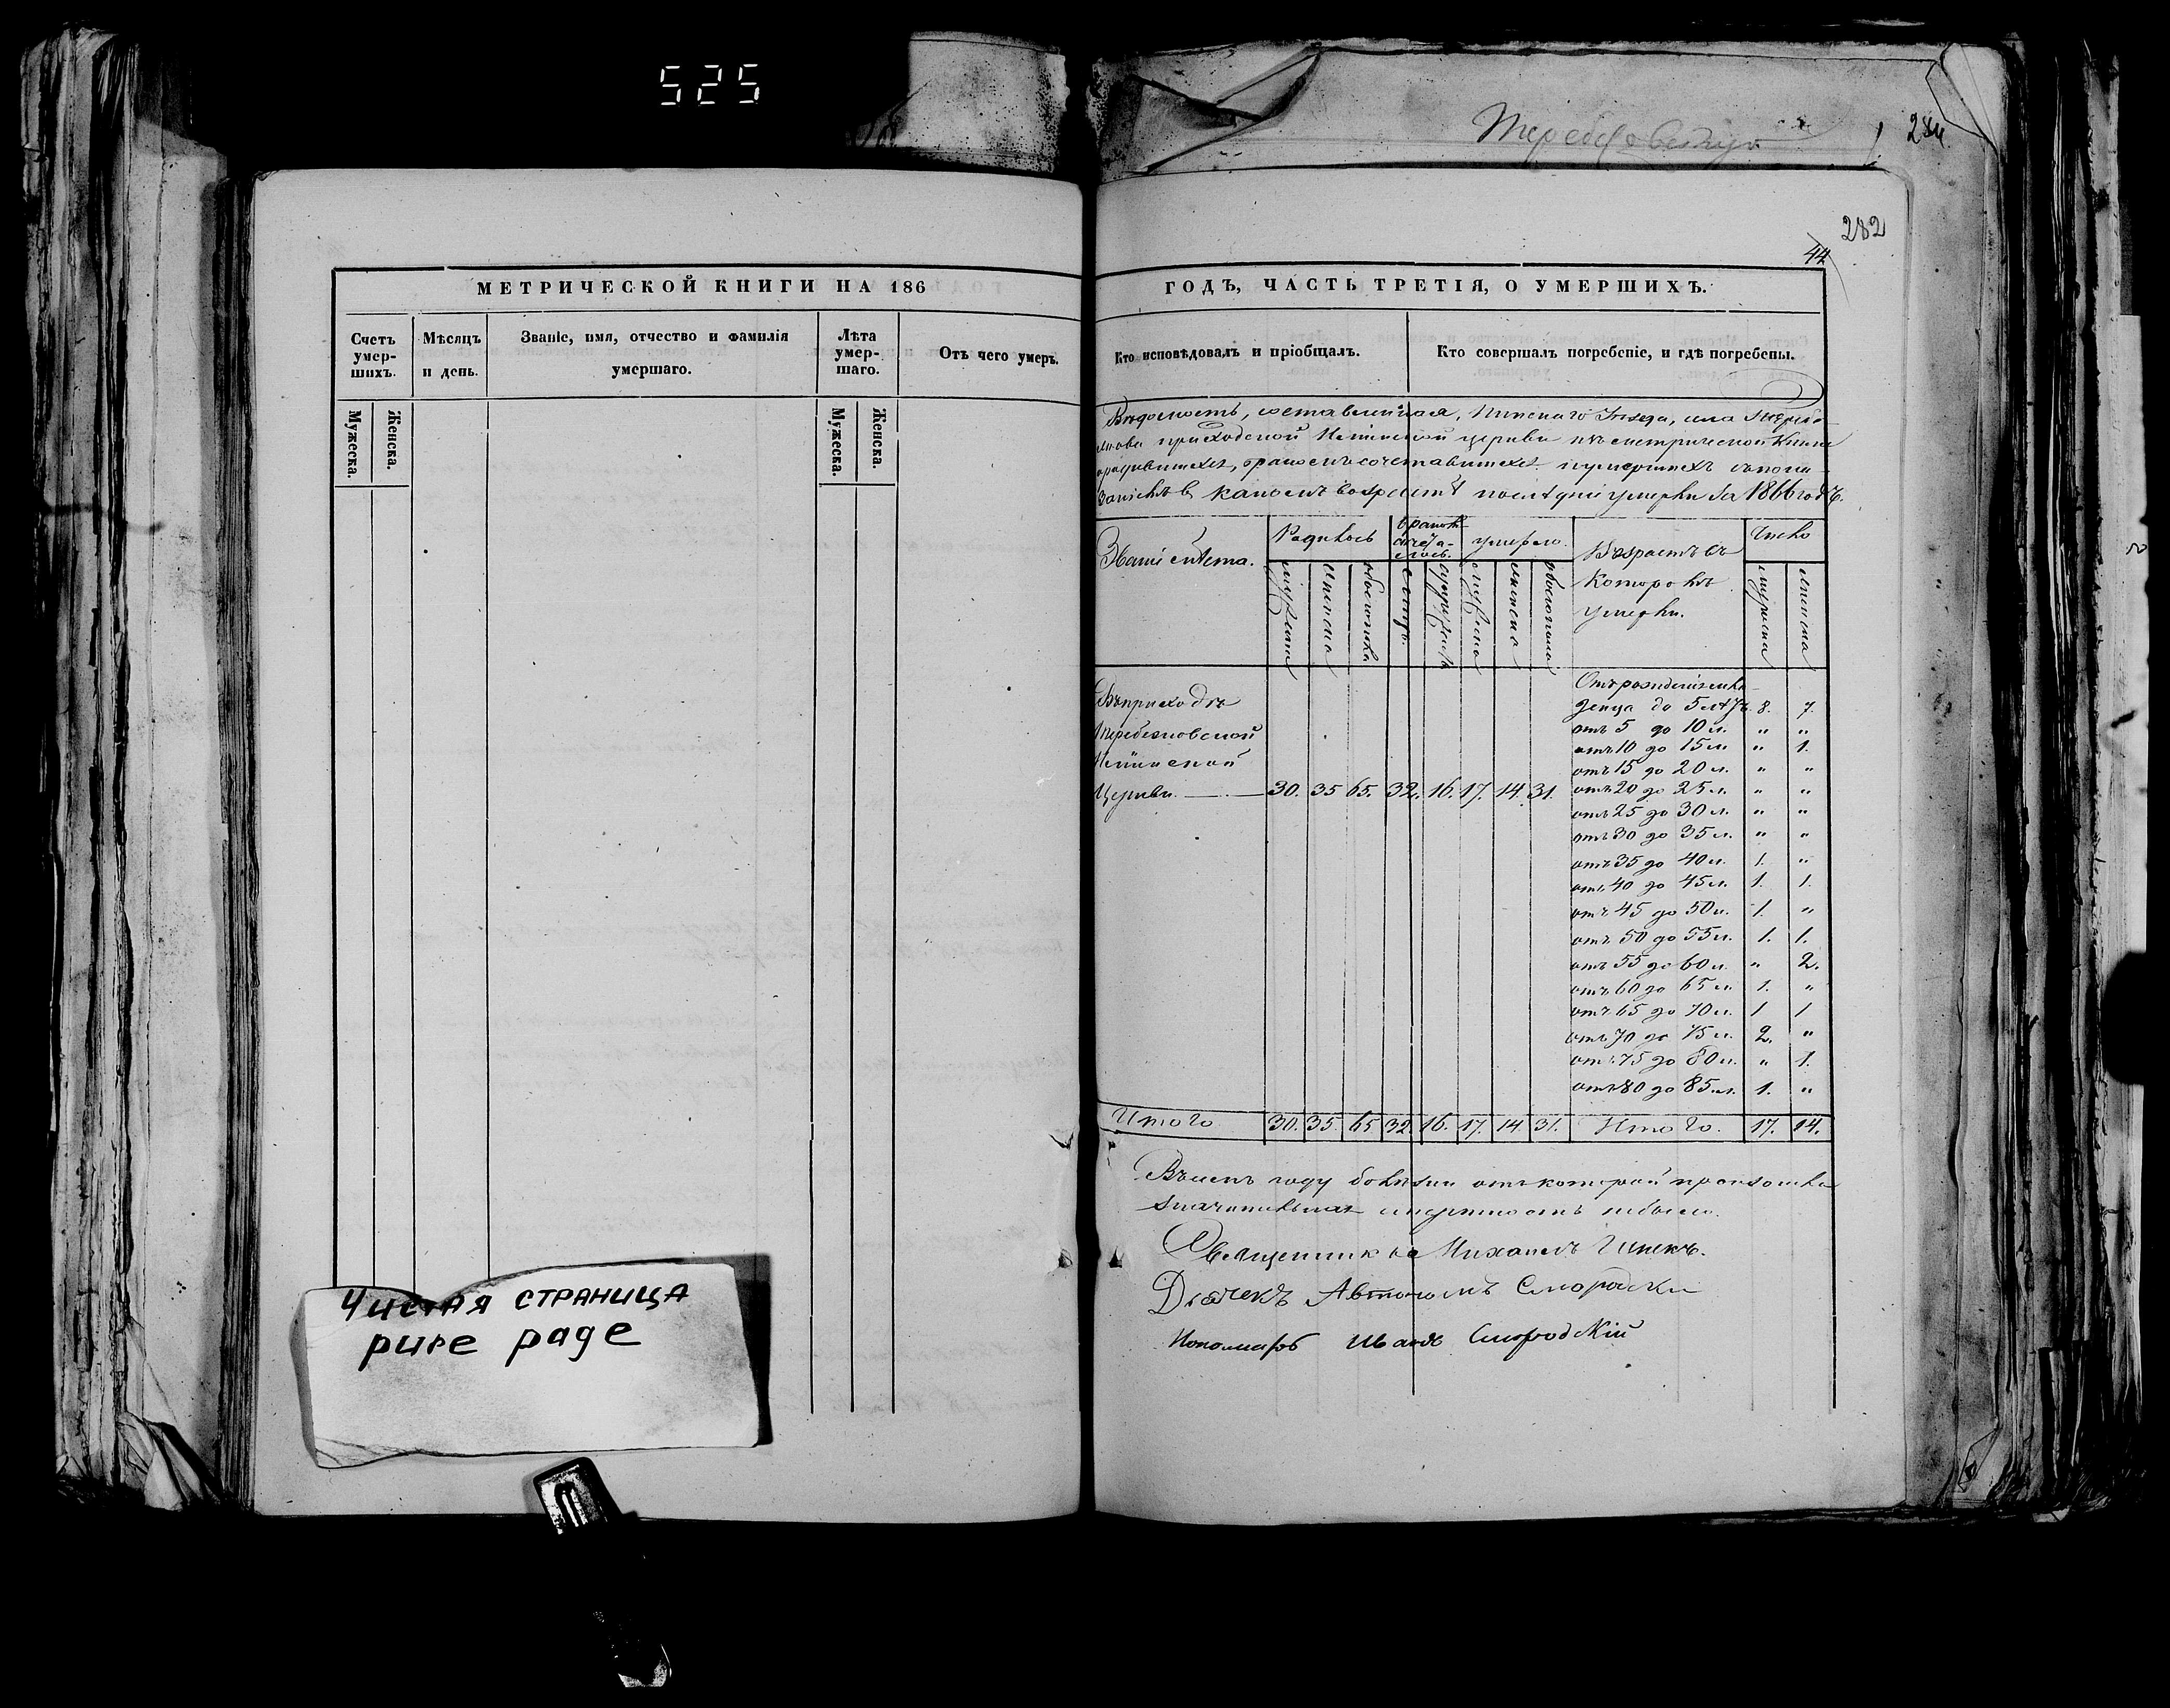 525
284
282
44
МЕТРИЧЕСКОЙ КНИГИ НА 186
Счетъ умер-шихъ.
Мѣсяцъ и день.
Званіе, имя, отчество и фамилія умершаго.
Лѣта умер-шаго.
Отъ чего умеръ.
Мужеска. Женска.
Мужеска. Женска.
Чистая страница
pure page
ГОДЪ, ЧАСТЬ ТРЕТІЯ, О УМЕРШИХЪ.
Кто исповѣдовалъ и пріобщалъ.
Кто совершалъ погребеніе, и гдѣ погребены.
Вѣдомость, составленная, Пинскаго Уѣзда, села
приходской церкви метрической книги
родившихся, бракомъ сочетавшихся и умершихъ
въ какомъ возрастѣ послѣдніи умерли за 1866 годъ.
Званіе мѣста.
Родилось
браковъ сочета-лось.
умерло.
Возрастъ въ которомъ умерли.
Число
мужеска женска обоего пола
мужеска женска обоего пола
мужеска женска
Въ приходѣ
Церкви. 30. 35 65. 32. 16. 17. 14. 31.
Отъ рожденія мла-
денца до 5 лѣтъ. 8. 7.
отъ 5 до 10 л. " "
отъ 10 до 15 л " 1.
отъ 15 до 20 л. " "
отъ 20 до 25 л. " "
отъ 25 до 30 л. " "
отъ 30 до 35 л. " "
отъ 35 до 40 л. 1. "
отъ 40 до 45 л. 1. 1.
отъ 45 до 50 л. 1. "
отъ 50 до 55 л. 1. 1.
отъ 55 до 60 л. " 2.
отъ 60 до 65 л. 1. "
отъ 65 до 70 л. 1 1
отъ 70 до 75 л. 2. "
отъ 75 до 80 л. " 1.
отъ 80 до 85 л. 1. "
Итого 30. 35. 65 32. 16. 17. 14 31. Итого. 17. 14.
Въ семъ году болѣзни отъ которой произошла
значительная смертность небыло.
Священникъ Михаилъ
Дьячекъ Автономъ
Пономарь Иванъ Смородскій